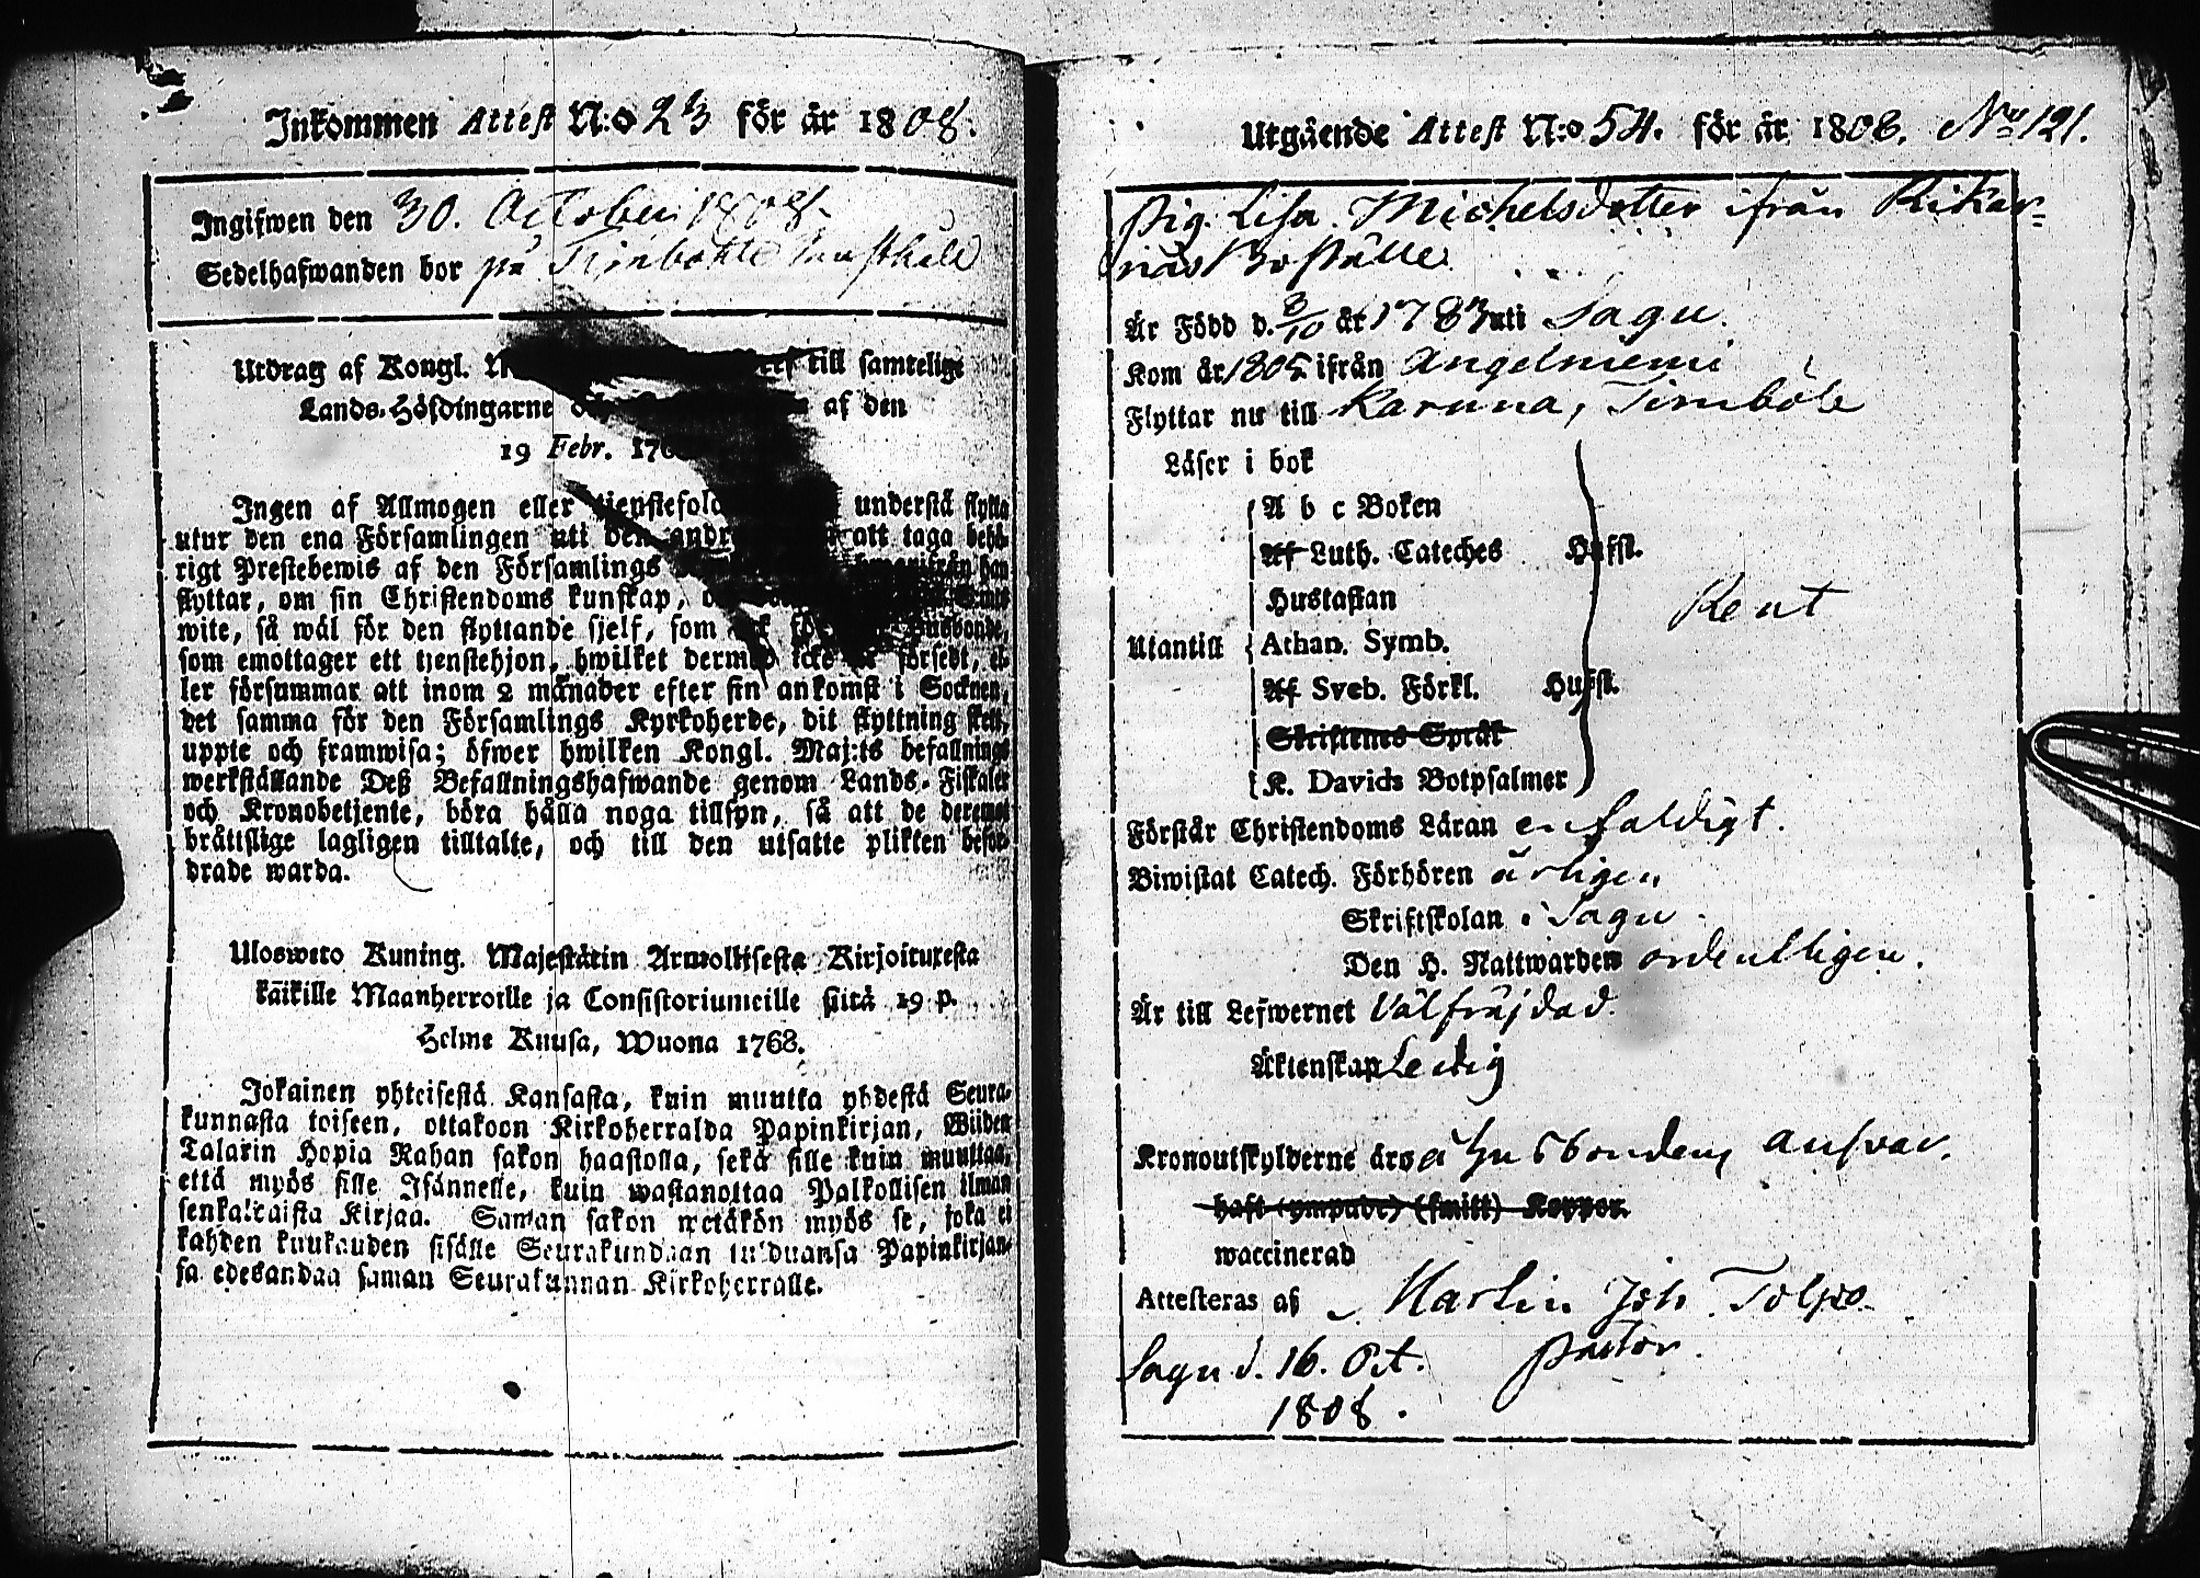 Inkommen Attest N:o 23 för år 1808.
Ingifwen den 30. October 1808.
Sedelhafwanden bor på
Utdrag af Kongl. till samtelige
Lands-Höfdingarne af den
19 Febr. 176
Ingen af Allmogen eller tienstefolk understå flytta
utur den ena Församlingen uti den andra att taga behö-
rigt Prestebewis af den Församlings hwarifrån han
flyttar, om sin Christendoms kunskap,
wite, så wäl för den flyttande sjelf, som husbonde,
som emottager ett tjenstehjon, hwilket dermed icke är försedt, el-
ler försummar att inom 2 månader efter sin ankomst i Socknen,
det samma för den Församlings Kyrkoherde, dit flyttning skett,
uppte och framwisa; öfwer hwilken Kongl. Maj:ts befallnings
werkställande Deß Befallningshafwande genom Lands-Fiskaler
och Kronobetjente, böra hålla noga tillsyn, så att de deremot
bråttslige lagligen tilltalte, och till den utsatte plikten befor-
drade warda.
Uloswero Kuning. Majestätin Armollisesta Kirjoituxesta
kaikille Maanherroille ja Consistoriumeille siitä 19 p.
Helme Kuusa, Wuona 1768.
Jokainen yhteisestä Kansasta, kuin muutta yhdestä Seura-
kunnasta toiseen, ottakoon Kirkoherralda Papinkirjan, Wiiden
Talarin Hopia Rahan sakon haastolla, sekä sille kuin muuttaa,
että myös sille Isännelle, kuin wastanottaa Palkollisen ilman
senkaltaista Kirjaa. Saman sakon wetäkön myös se, joka ei
kahden kuukauden sisälle Seurakundaan tulduansa Papinkirjan-
sa edesandaa saman Seurakunnan Kirkoherralle.
Utgående Attest N:o 54. för år 1808. No 121.
Pig. Lisa Michelsdotter ifrån Rikar-
näs Boställe
Är Född d. 3/10 år 1783 uti Sagu.
Kom år 1805 ifrån Angelniemi
Flyttar nu till Karuna, Timböle
Läser i bok
A b c Boken
Af Luth. Cateches Hufst.
Hustaflan
Rent
Utantill Athan. Symb.
Af Sveb. Förkl. Hufst.
Skriftenes Språk
K. Davids Botpsalmer
Förstår Christendoms Läran enfaldigt.
Biwistat Catech. Förhören årligen
Skriftskolan i Sagu
Den H. Nattwarden ordentligen.
Är till Lefwernet Välfräjdad.
Äktenskap Ledig
Kronoutskylderne äro å Husbondens answar.
haft (ympade) (smitt) Koppor.
waccinerad
Attesteras af Martin Joh Tolpo
Sagu d. 16. Oct. Pastor.
1808.